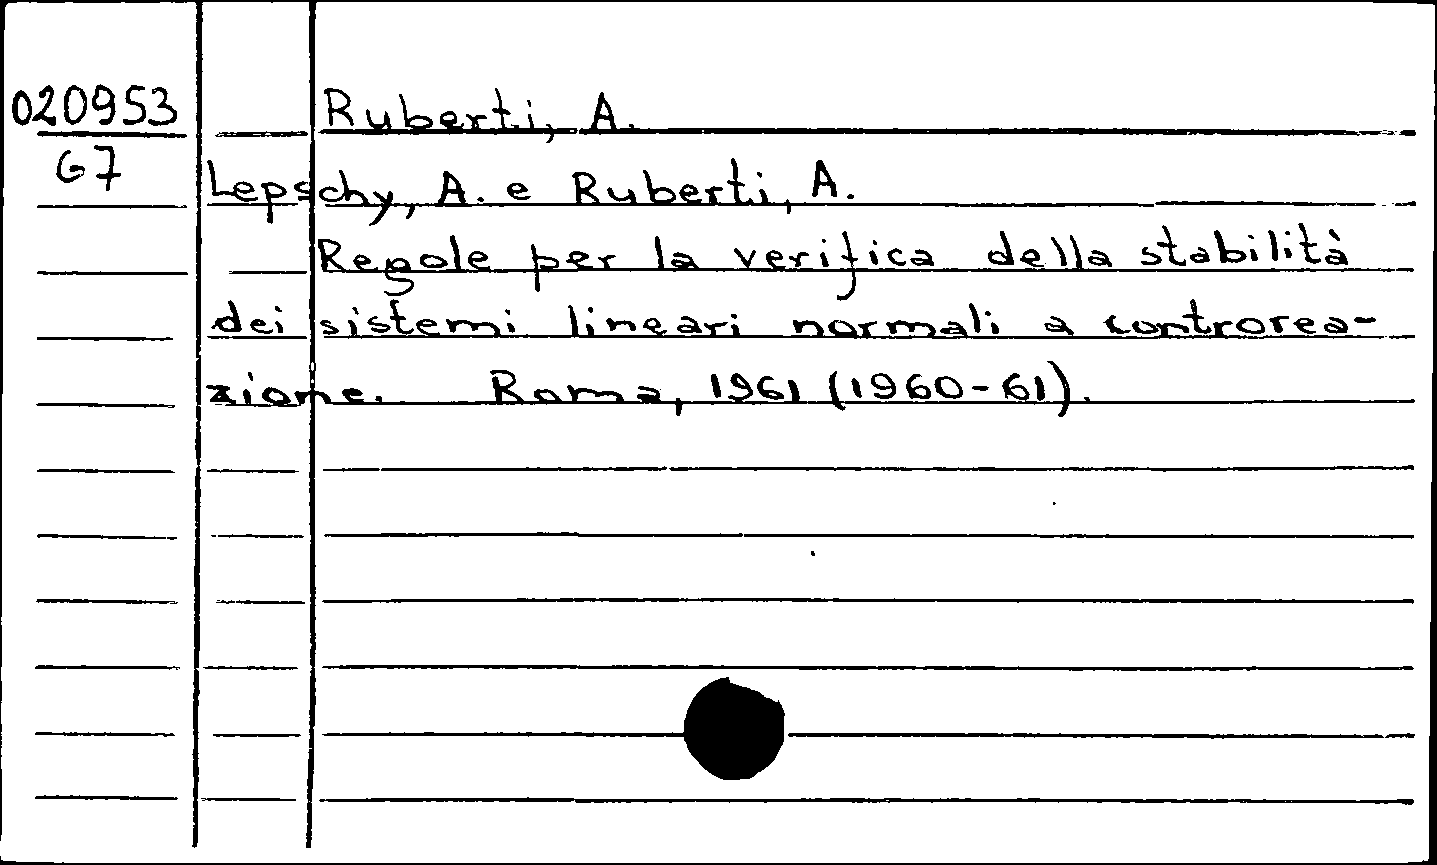 020953 Ruberti, A.
67 Lepschy, A. e Ruberti, A.
Regole per la verifica della stabilità
dei sistemi lineari normali a controrea-
zione. Roma, 1961 (1960-61).